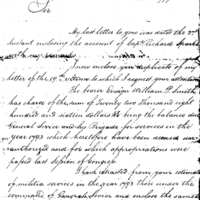 Sir
My last letter to you was dated the 3d
instant enclosing the account of Capt. Richard Sparks
I now enclose you duplicate of my
letter of the 19th to which I request your attention
The bearer Ensign William P. Smith
has charge of the sum of Twenty two thousand eight
hundred and sixteen dollars being the balance due
General Sevier and his Brigade for services in the
year 1793 which heretofore have been deemed un
authorized and for which appropriations were
passed last session of Congress
I had extracted from your estimate
of militia services in the year 1793 then under the
command of General Sevier and enclose the same